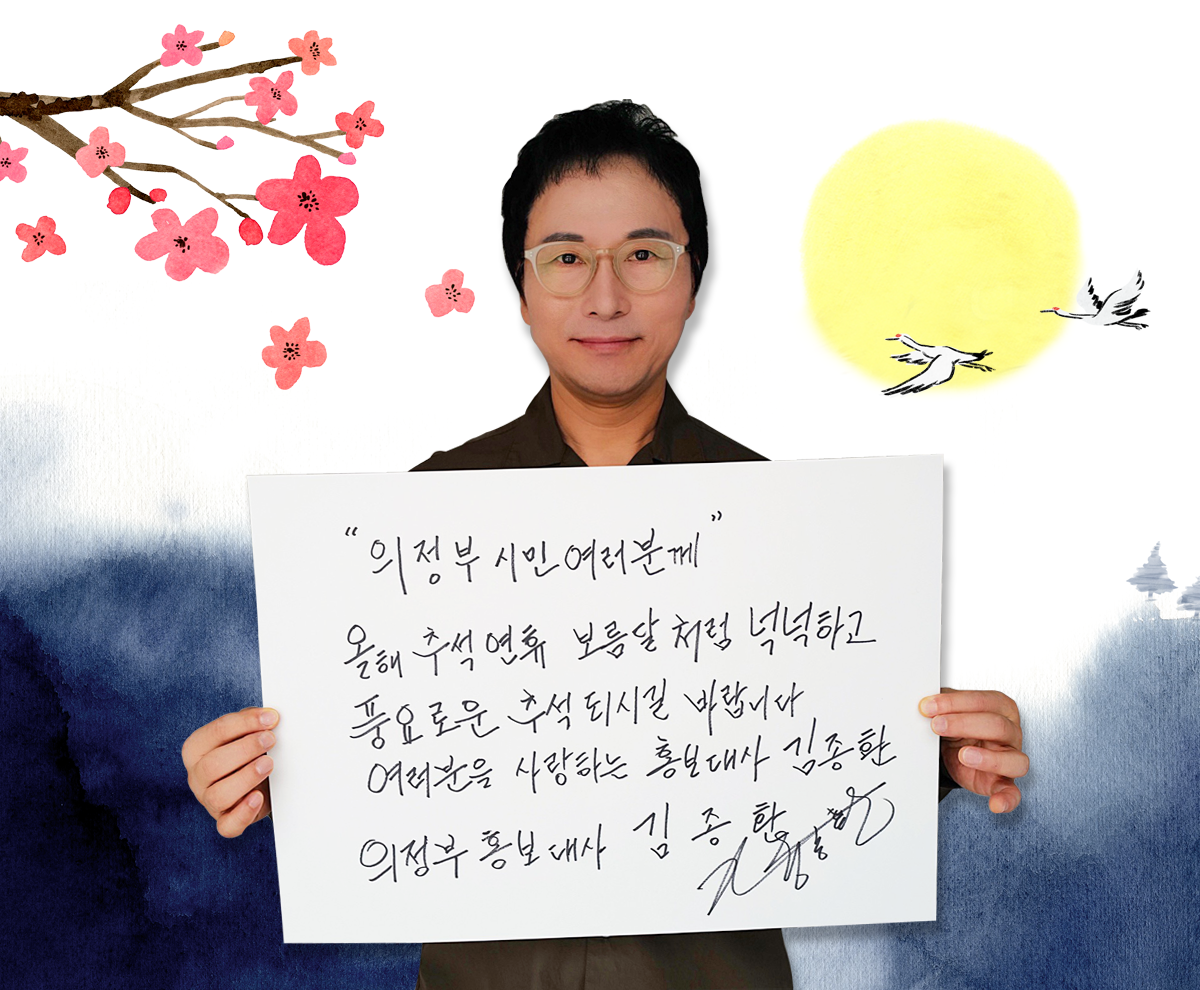 “의정부 시민 여러분께”
올해 추석 연휴 보름달 처럼 넉넉하고
풍요로운 추석 되시길 바랍니다
여러분을 사랑하는 홍보대사 김종환
의정부 홍보대사 김종환